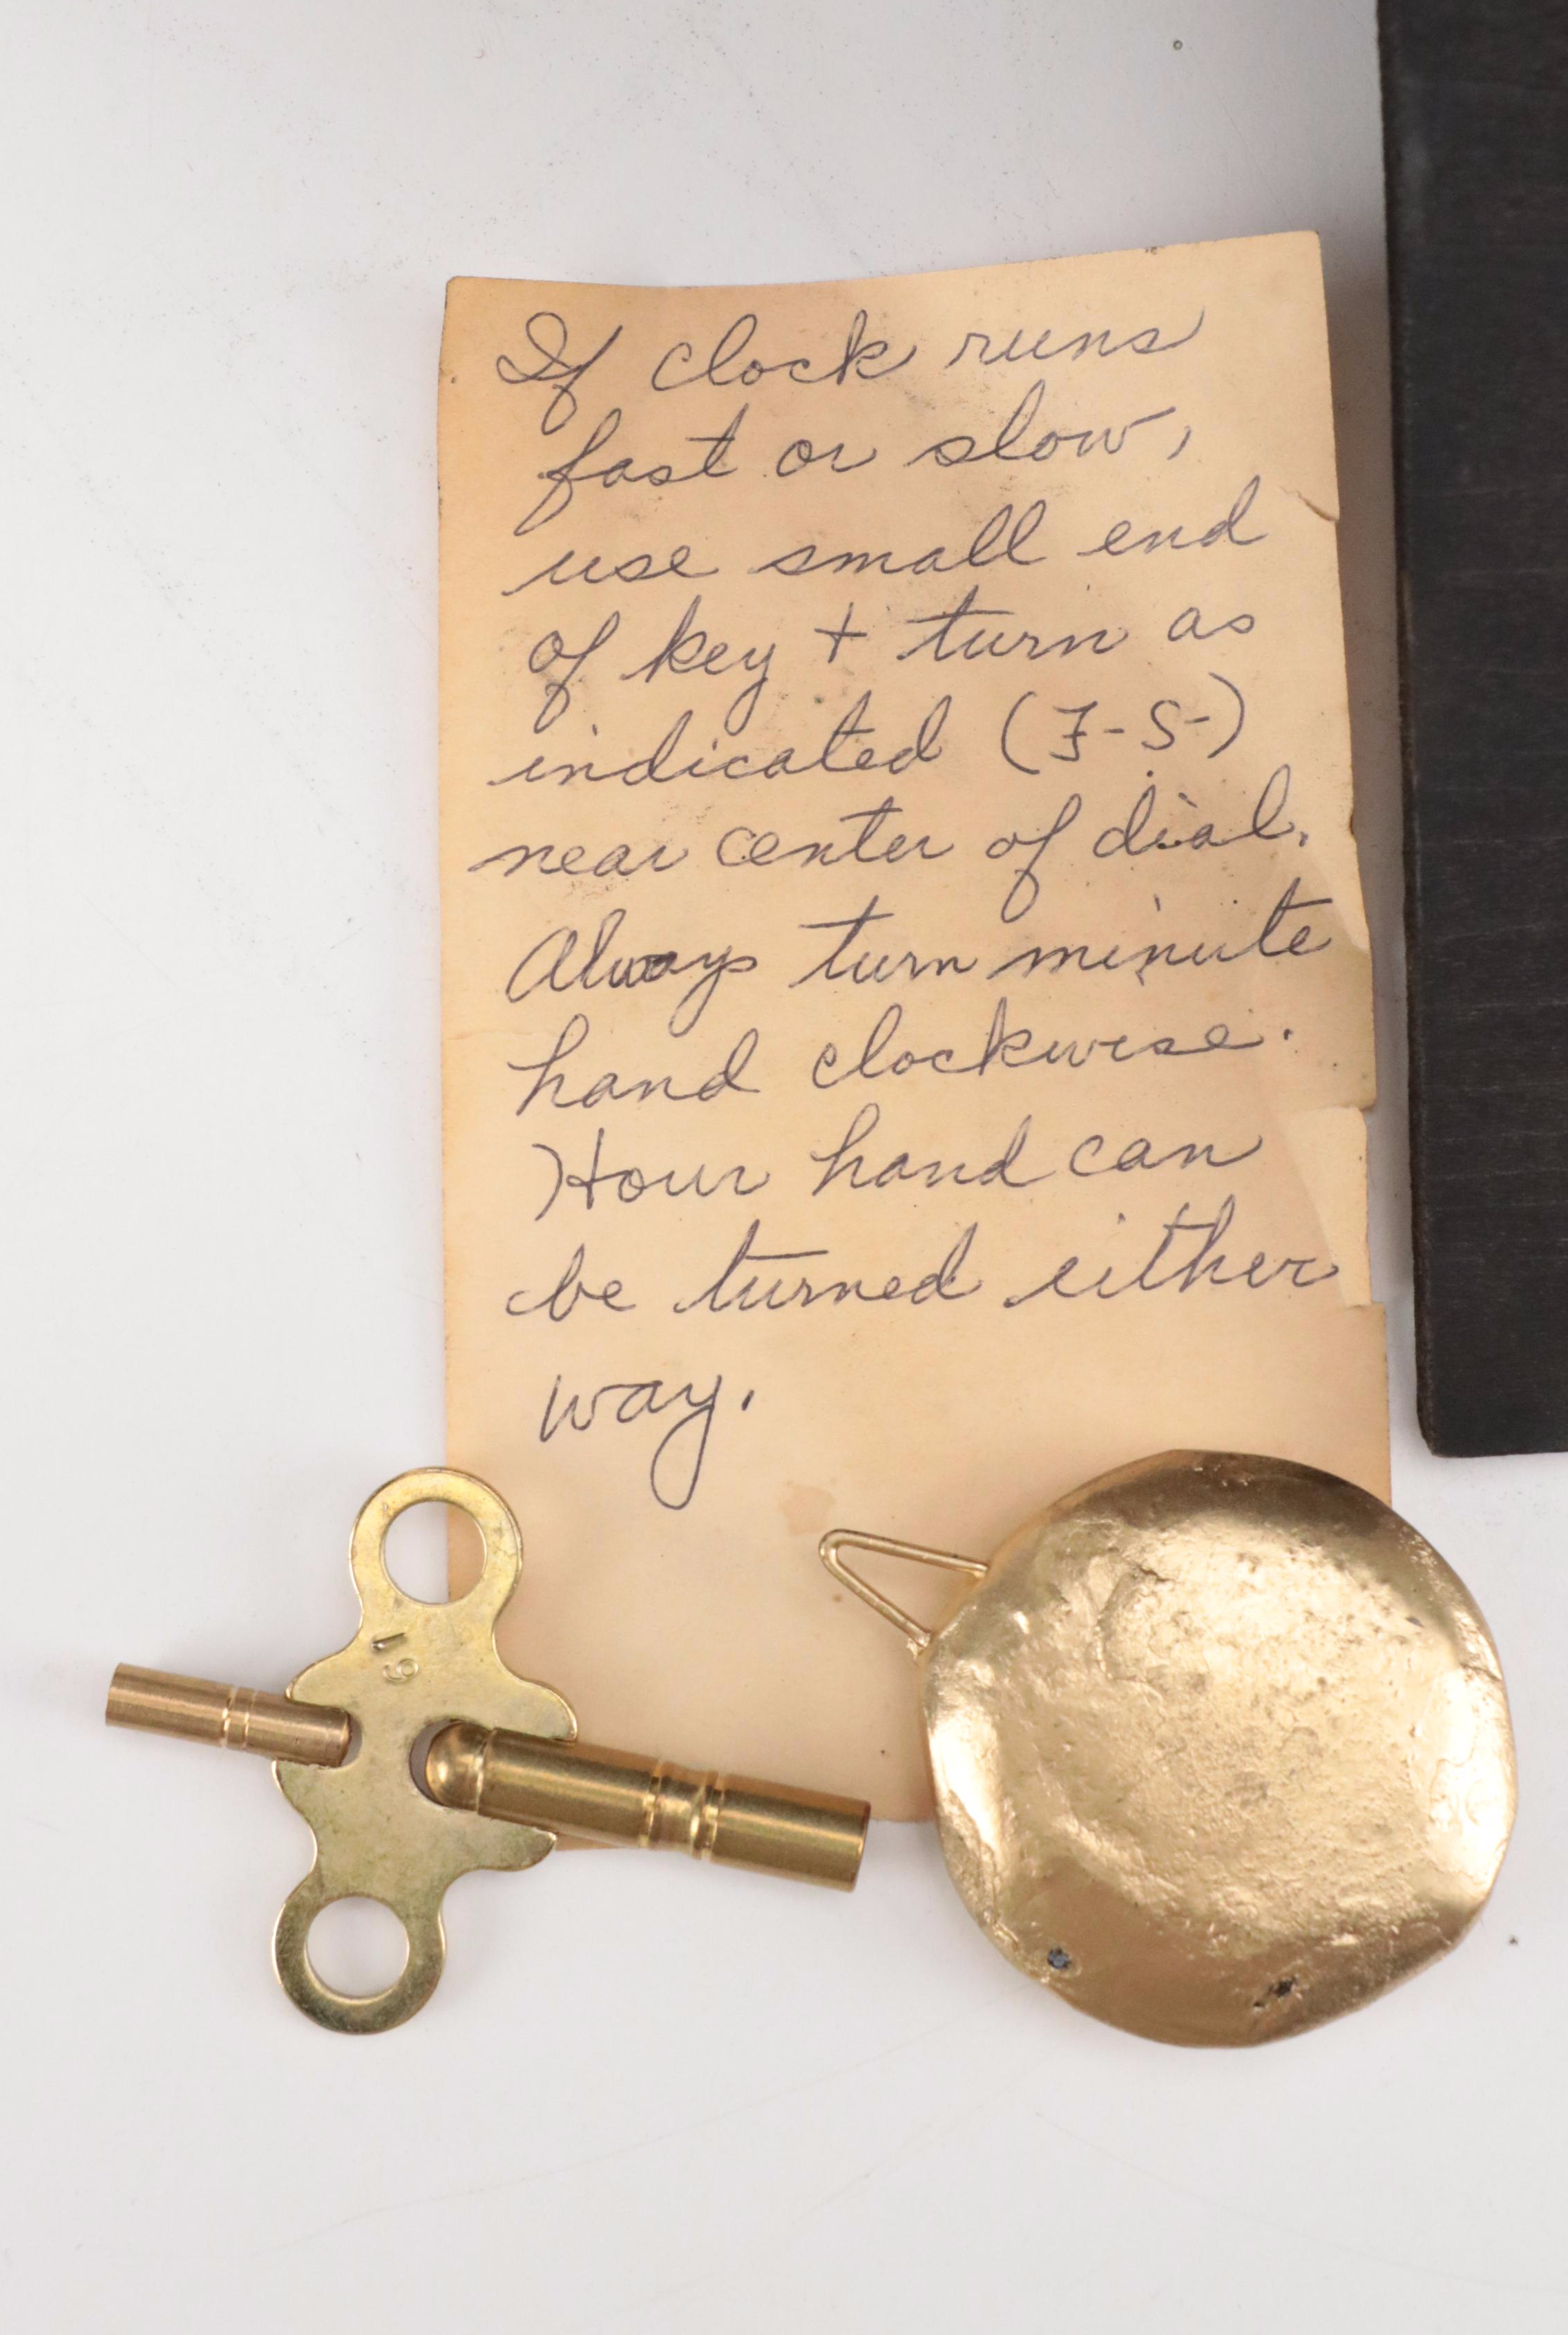 If clock runs
fast or slow,
use small end
of key + turn as
indicated (F-S-)
near center of dial.
Always turn minute
hand clockwise.
Hour hand can
be turned either
way.
19